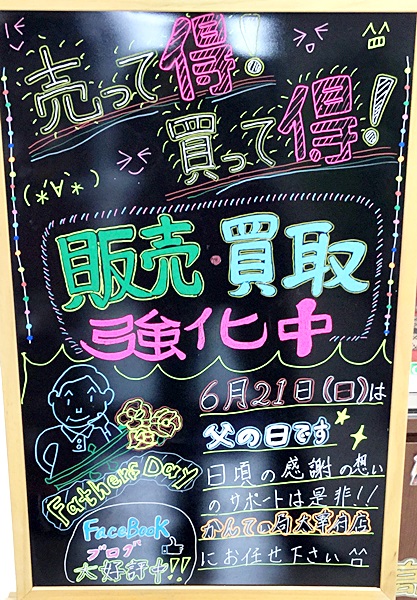 売って得!
買って得!
(*'∀'*)
販売・買取
強化中
6月21日(日)は
父の日です
日頃の感謝の想い
のサポートは是非!!
かんてい局大宰府店
にお任せ下さい
Fathers Day
FaceBook
ブログ
大好評中!!